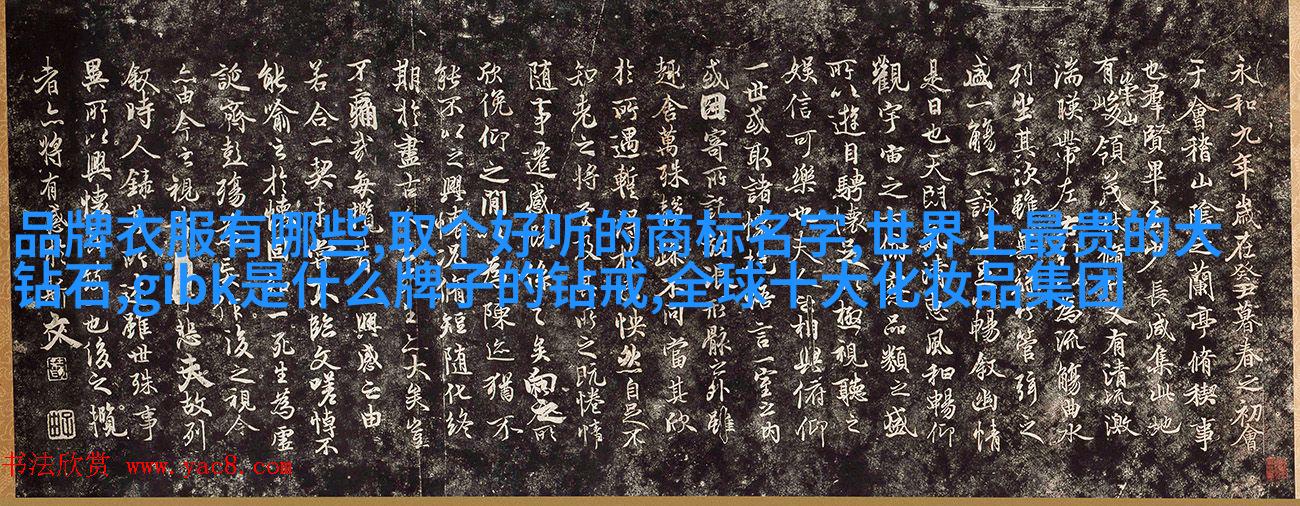 品牌衣服有哪些,取个好听的商标名字,世界上最贵的大
钻石,gibk是什么牌子的钻戒,全球十大化妆品集团
永和九年歲在癸丑暮春之初會
于會稽山陰之蘭亭脩稧事
也羣賢畢至少長咸集此地
有崇山峻領茂林脩竹又有清流激
湍暎帶左右為流觴曲水
列坐其次雖無管弦之
盛一觴一詠暢敘幽情
是日也天朗惠風和暢仰
觀宇宙之品類之盛
所以遊目騁懷足極視聽之
娛信可樂也夫人之相與俯仰
一世或取諸懷悟言一室之內
或因寄所託形骸之外雖
趣舍萬殊不同當其欣
於所遇暫得怏然自足不
知老之將至及所之既惓情
隨事遷感慨之矣向之所
欣俛仰之間以為陳迹猶不
能不以之興懷況脩短隨化終
期於盡古人云亦大矣豈
不痛哉每攬昔興感之由
若合一契未嘗不臨文嗟悼不
能喻之於懷固一死生為虛
誕齊彭殤為妄作後之視今
亦由今之視昔悲夫故列
敘時人錄其所述雖世殊事
異所以興懷其致一也後之攬
者亦將有感於斯文
书法欣赏 www.yac8.com